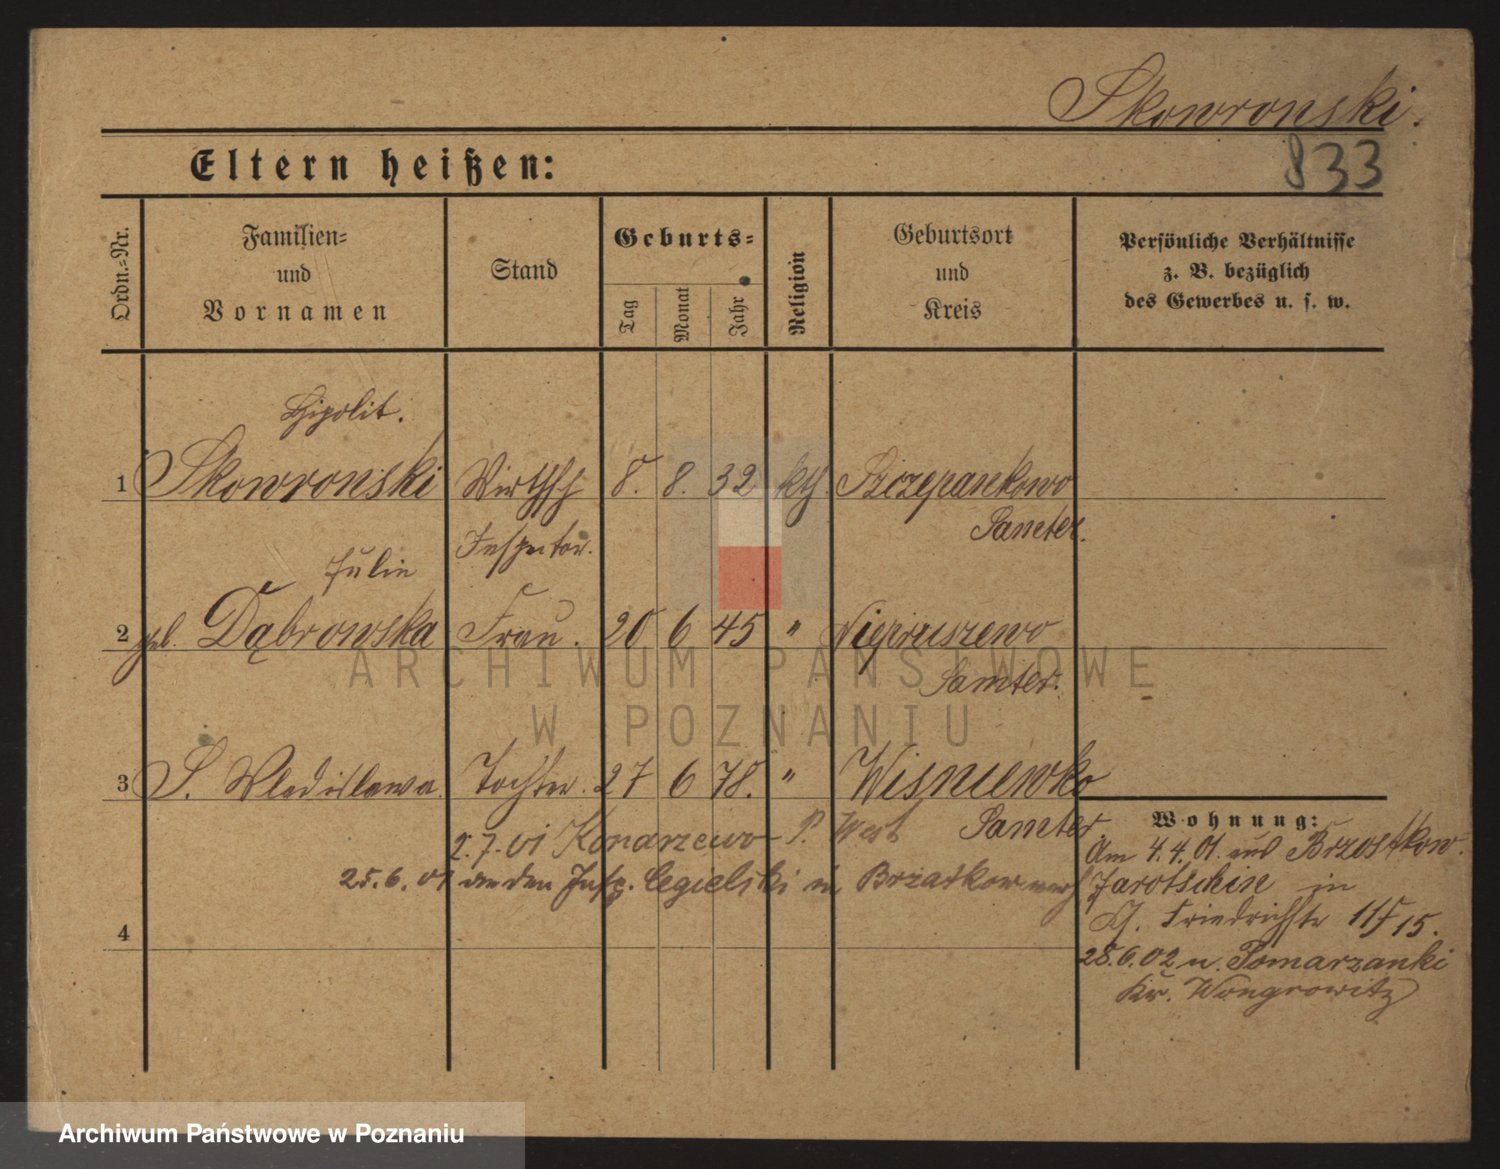 Skowronski.
833
Eltern heißen:
Ordn.-Nr.
Familien-
und
Vornamen
Stand
Geburts-
Tag
Monat
Jahr
Religion
Geburtsort
und
Kreis
Persönliche Verhältnisse
z. B. bezüglich
des Gewerbes u. s. w.
Hipolit.
1 Skowronski Wirthsch 8. 8. 32 kth. Szczepankowo
Inspector. Samter.
Julie
2 geb. Dąbrowska Frau. 20 6 45 " Niepruszewo
Samter.
3 S. Wladislawa. Tochter. 27 6 78. " Wisniewko
Samter.
Wohnung:
2.7.01 Konarzewo P. West
Am 4.4.01. aus Brzostkow.
25.6.01 an den Insp. Cegielski in Brzostkow
Jarotschin in
Friedrichstr 15.
4
28.6.02 n. Pomarzanki
Kr. Wongrowitz
ARCHIWUM PAŃSTWOWE
W POZNANIU
Archiwum Państwowe w Poznaniu